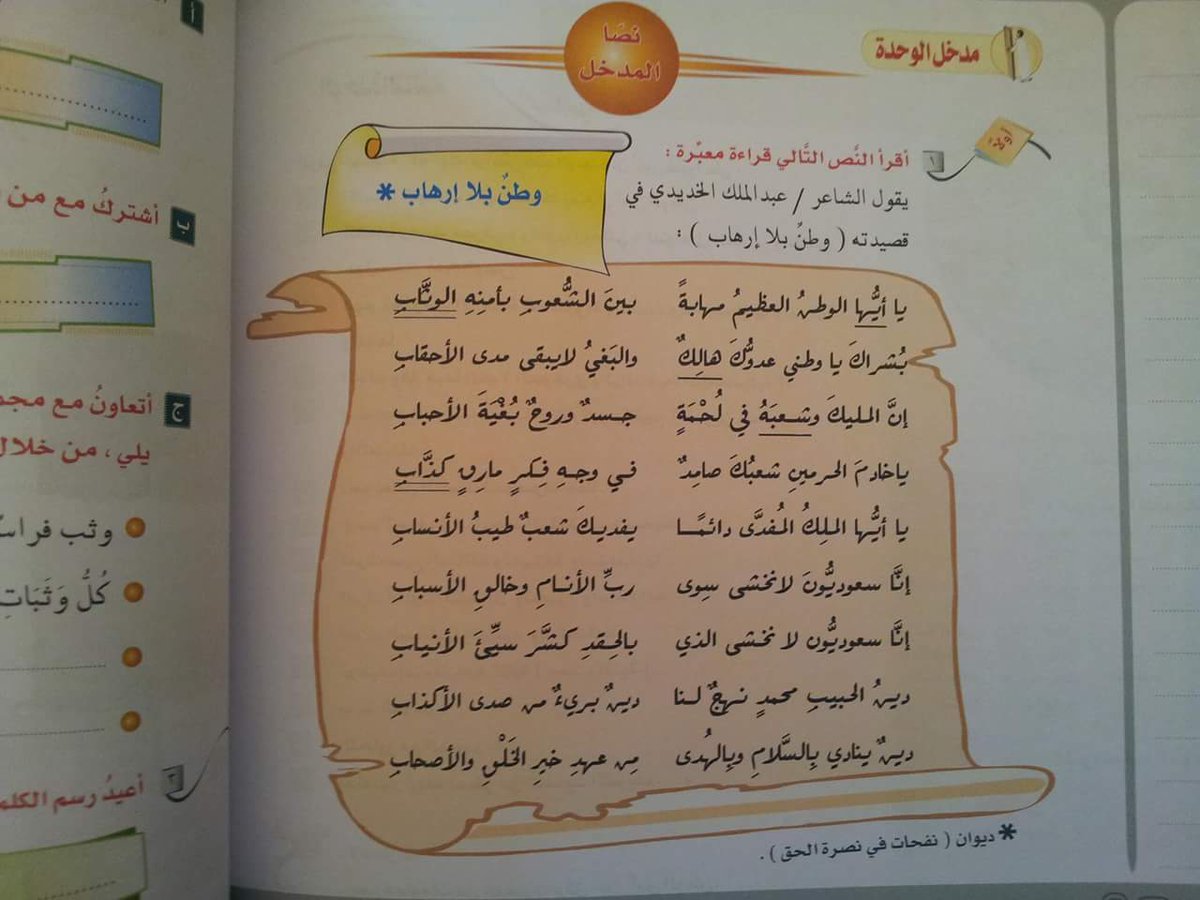 مدخل الوحدة
نصا
المدخل
أولاً
١ أقرأ النَّص التَّالي قراءة معبّرة :
وطنٌ بلا إرهاب *
يقول الشاعر / عبدالملك الخديدي في
قصيدته ( وطنٌ بلا إرهاب ) :
يا أيُّها الوطنُ العظيمُ مهابةً بينَ الشُّعوبِ بأمنِهِ الوثَّابِ
بُشراكَ يا وطني عدوُّكَ هالِكٌ والبَغيُ لايبقى مدى الأحقابِ
إنَّ المليكَ وشعبَهُ في لُحْمَةٍ جسدٌ وروحٌ بُغْيَةَ الأحبابِ
ياخادمَ الحرمينِ شعبُكَ صامِدٌ في وجهِ فِكرٍ مارِقٍ كذَّابِ
يا أيُّها الملِكُ المُفدَّى دائمًا يفديكَ شعبٌ طيبُ الأنسابِ
إنَّا سعوديُّونَ لانخشى سِوى ربِّ الأنامِ وخالقِ الأسبابِ
إنَّا سعوديُّون لا نخشى الذي بالحِقدِ كشَّرَ سيِّئَ الأنيابِ
دينُ الحبيبِ محمدٍ نهجٌ لنا دينٌ بريءٌ من صدى الأكذابِ
دينٌ ينادي بِالسَّلامِ وبِالهُدى مِن عهدِ خيرِ الخَلْقِ والأصحابِ
* ديوان ( نفحات في نصرة الحق ) .
أ
ب أشتركُ مع من
ج أتعاونُ مع
يلي ، من خلال
وثب
كُلُّ وَثَبَاتِ
٢ أعيدُ رسم